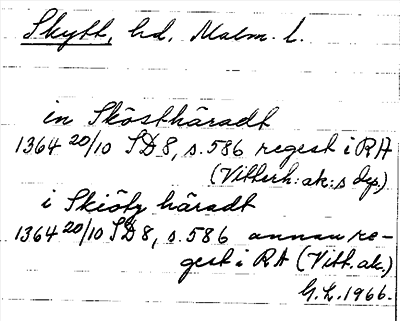 Skytt, hd, Malm. l.
in Skösthäradt
1364 20/10 SD 8, s. 586 regest i RA
(Vitterh:ak:s dep.)
i Skiöty häradt
1364 20/10 SD 8, s. 586 annan re-
gest i RA (Vitt.ak.)
G.L. 1966.